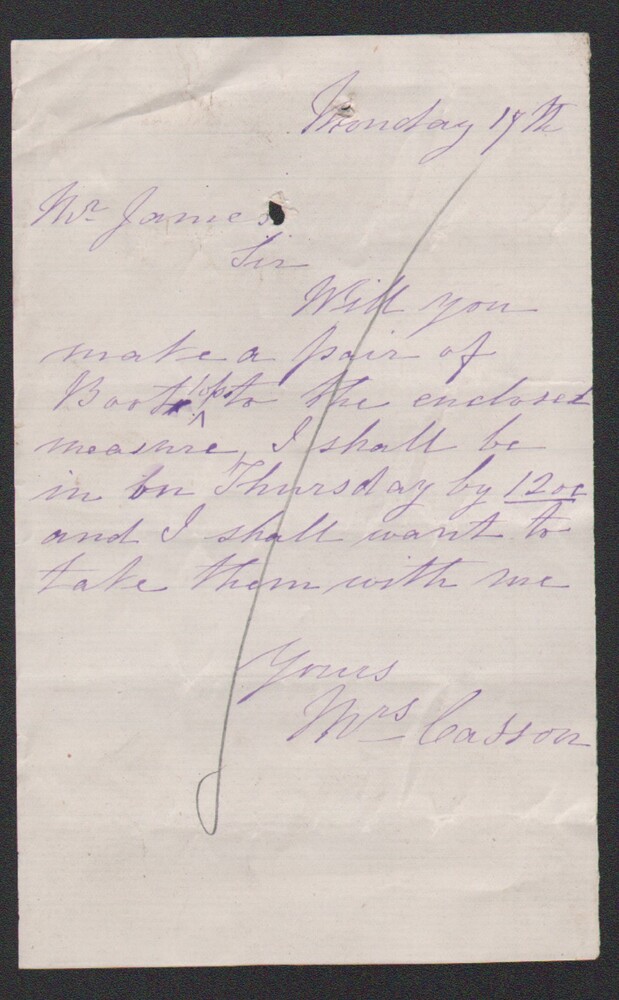 Monday 17th
Mr James
Sir
Will you
make a pair of
Boot tops to the enclosed
measure, I shall be
in on Thursday by 12 oc
and I shall want to
take them with me
Yours
Mrs Casson